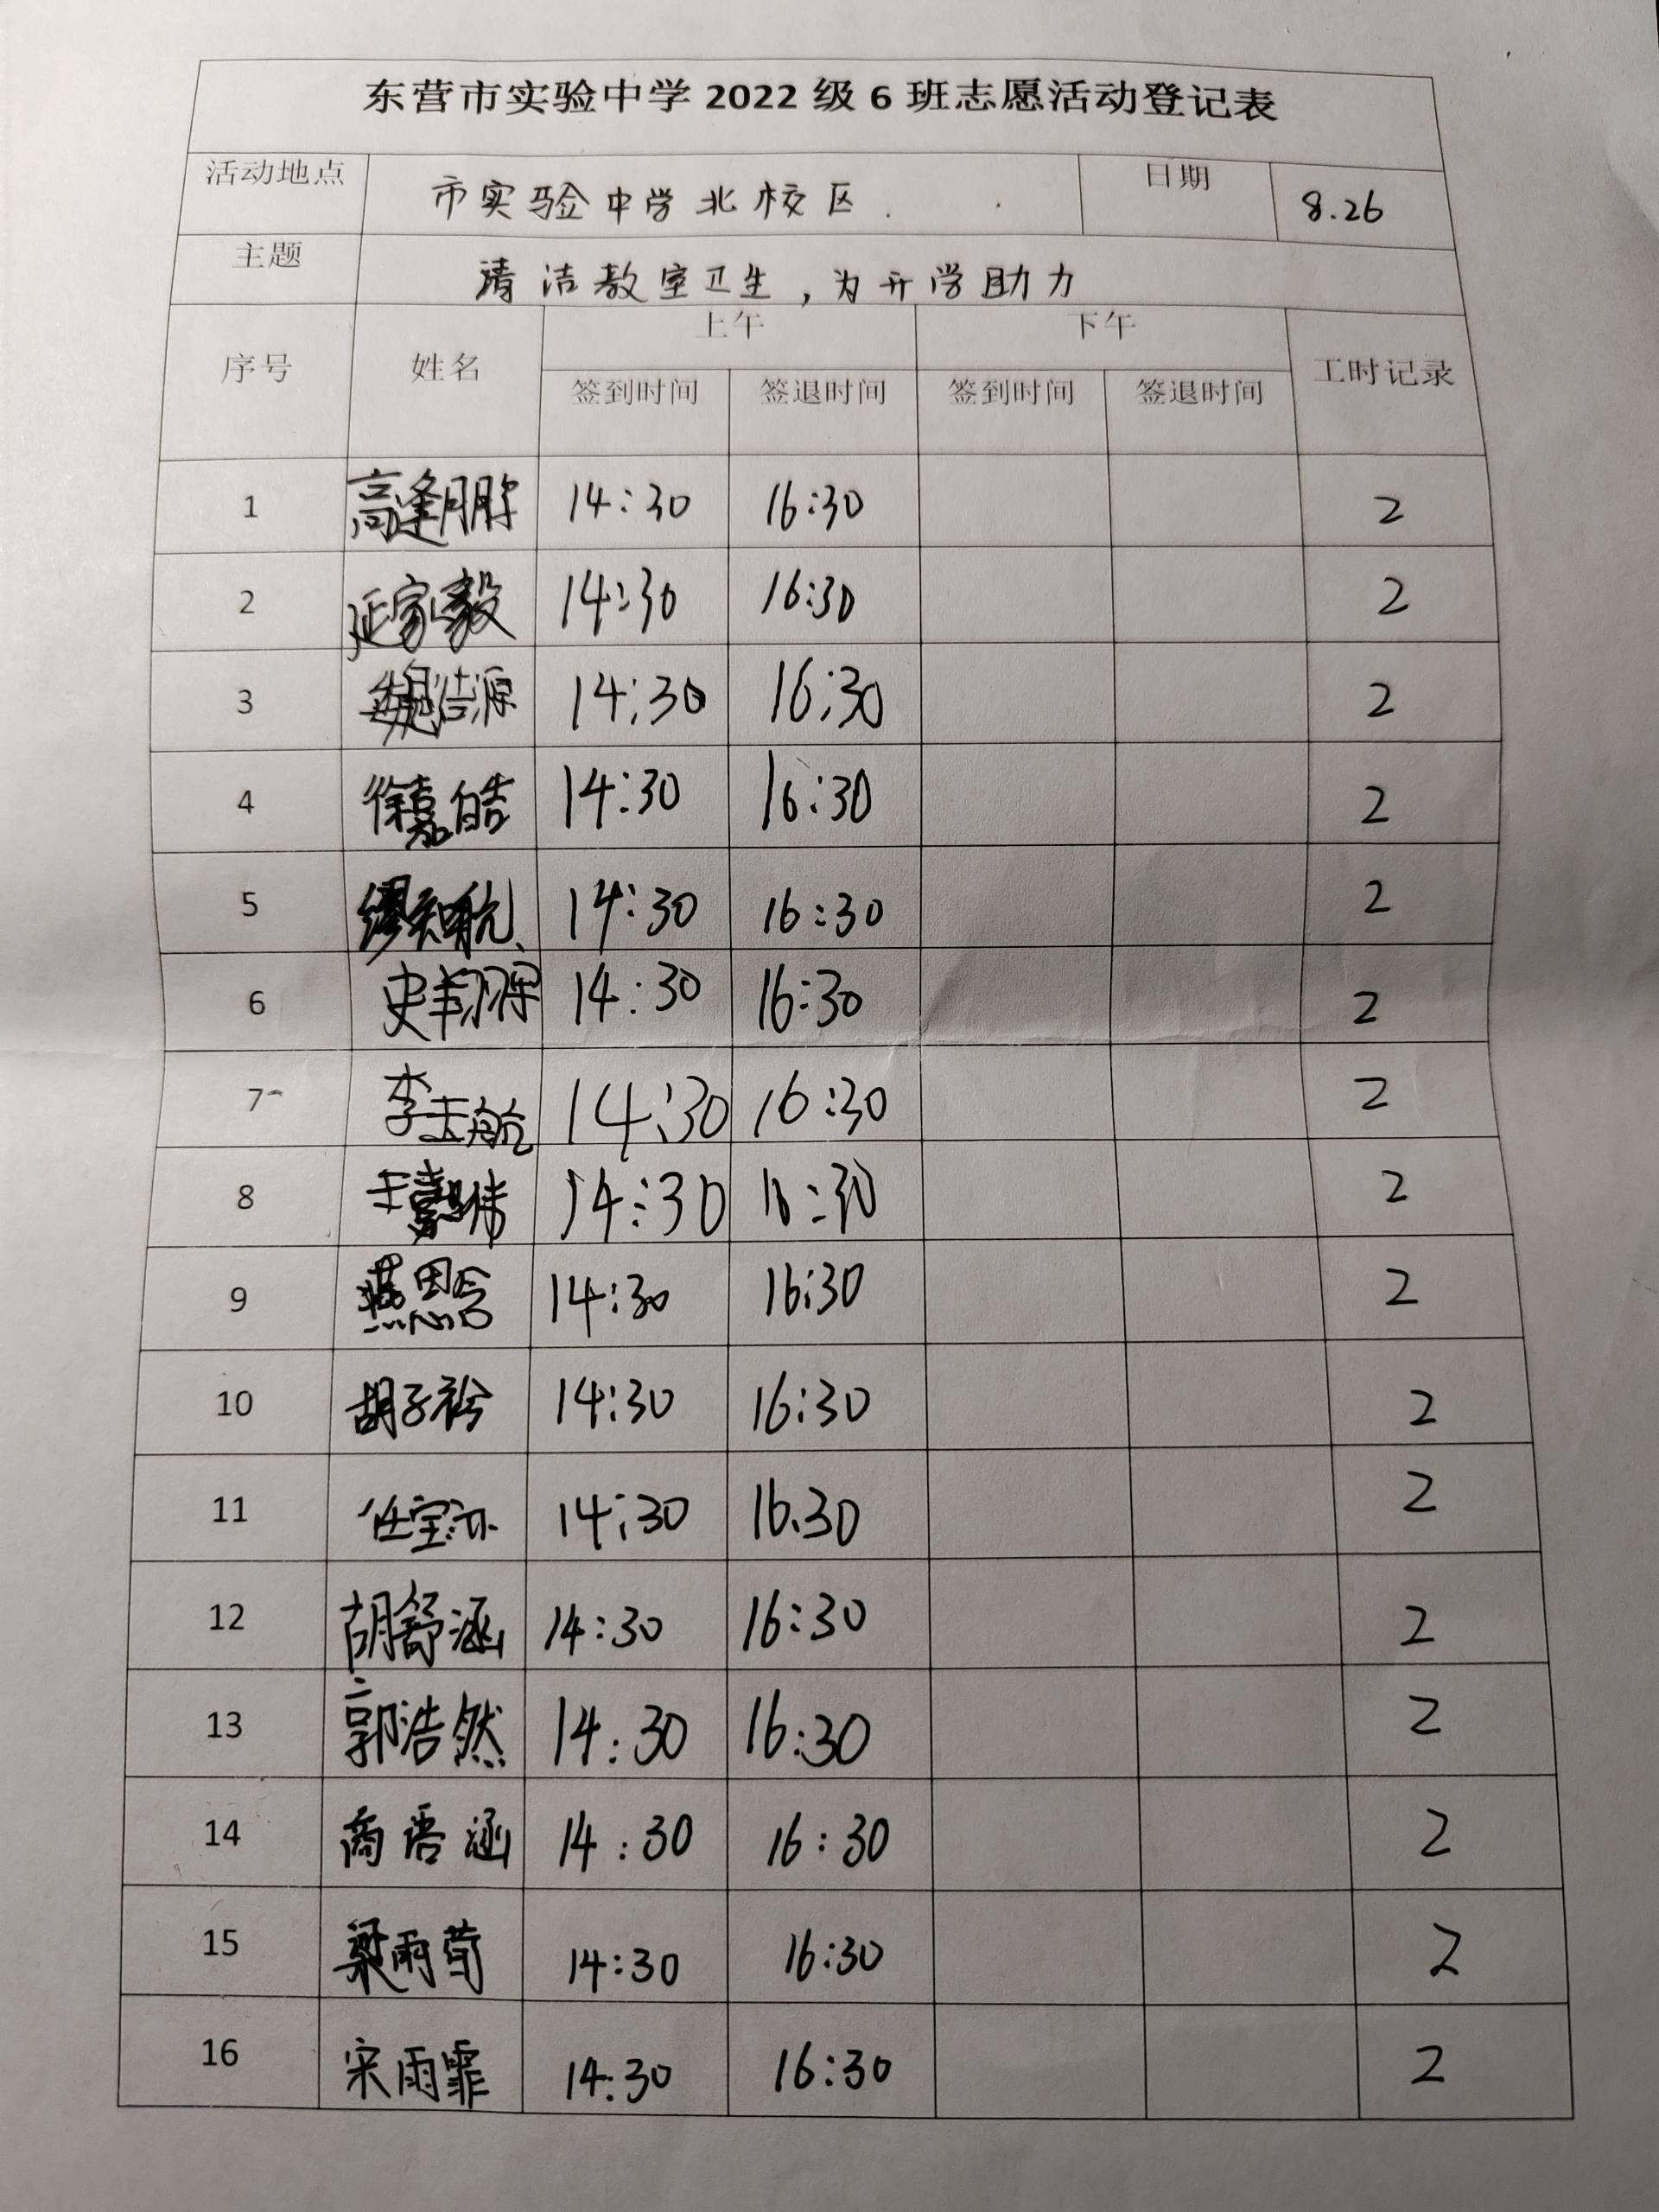 东营市实验中学 2022 级 6 班志愿活动登记表
活动地点 市实验中学北校区 日期 8.26
主题 清洁教室卫生，为开学助力
序号 姓名 上午 下午 工时记录
签到时间 签退时间 签到时间 签退时间
1 高逢 14:30 16:30 2
2 延家毅 14:30 16:30 2
3 魏浩源 14:30 16:30 2
4 徐嘉皓 14:30 16:30 2
5 缪知航 14:30 16:30 2
6 史翔 14:30 16:30 2
7 李玉航 14:30 16:30 2
8 王 14:30 16:30 2
9 燕思含 14:30 16:30 2
10 胡子衿 14:30 16:30 2
11 任宝 14:30 16.30 2
12 胡舒涵 14:30 16:30 2
13 郭浩然 14:30 16:30 2
14 商语涵 14:30 16:30 2
15 梁雨荀 14:30 16:30 2
16 宋雨霏 14:30 16:30 2